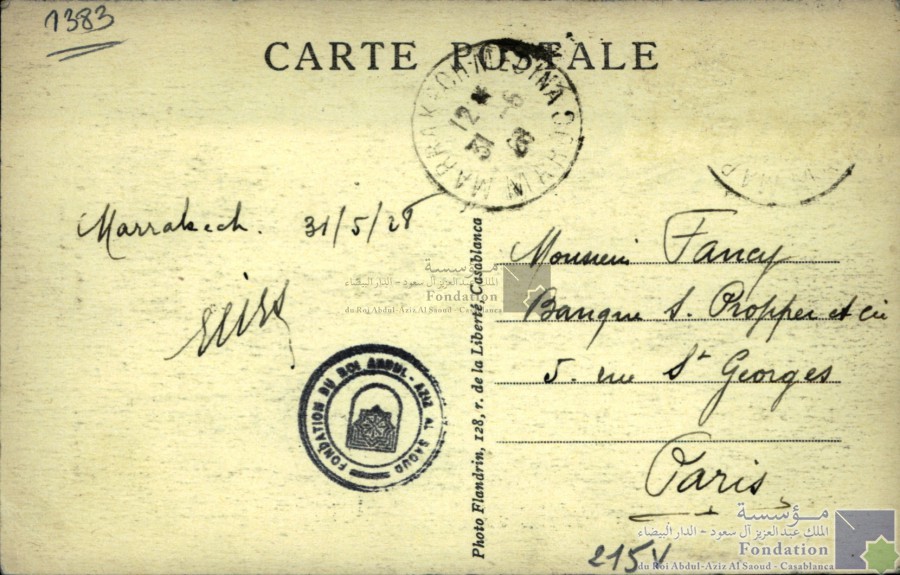 1383
CARTE POSTALE
MARRAKECH-MEDINA
12 *
31 - 5
28
Marrakech. 31/5/28
Monsieur Fancy
Banque S. Propper et Cie
5. rue St Georges
Paris
Photo Flandrin, 128, r. de la Liberté, Casablanca
مؤسسة
الملك عبد العزيز آل سعود - الدار البيضاء
Fondation
du Roi Abdul-Aziz Al Saoud - Casablanca
FONDATION DU ROI ABDUL-AZIZ AL SAOUD
215V
مؤسسة
الملك عبد العزيز آل سعود - الدار البيضاء
Fondation
du Roi Abdul-Aziz Al Saoud - Casablanca